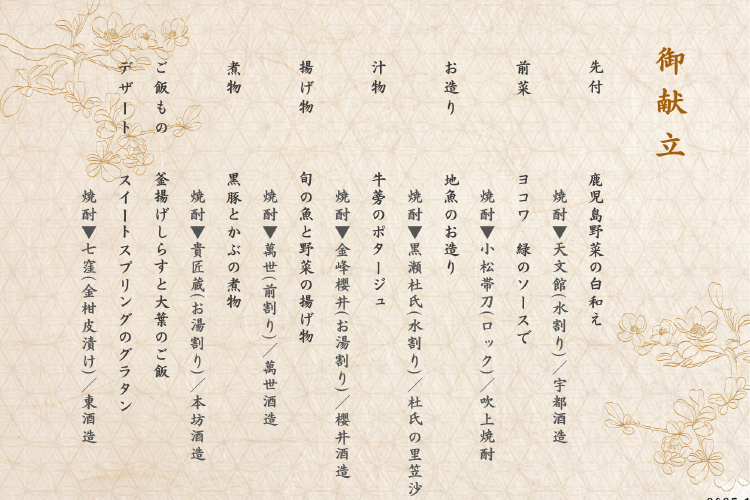 御献立
先付 鹿児島野菜の白和え
焼酎▼天文館(水割り)／宇都酒造
前菜 ヨコワ 緑のソースで
焼酎▼小松帯刀(ロック)／吹上焼酎
お造り 地魚のお造り
焼酎▼黒瀬杜氏(水割り)／杜氏の里笠沙
汁物 牛蒡のポタージュ
焼酎▼金峰櫻井(お湯割り)／櫻井酒造
揚げ物 旬の魚と野菜の揚げ物
焼酎▼萬世(前割り)／萬世酒造
煮物 黒豚とかぶの煮物
焼酎▼貴匠蔵(お湯割り)／本坊酒造
ご飯もの 釜揚げしらすと大葉のご飯
デザート スイートスプリングのグラタン
焼酎▼七窪(金柑皮漬け)／東酒造